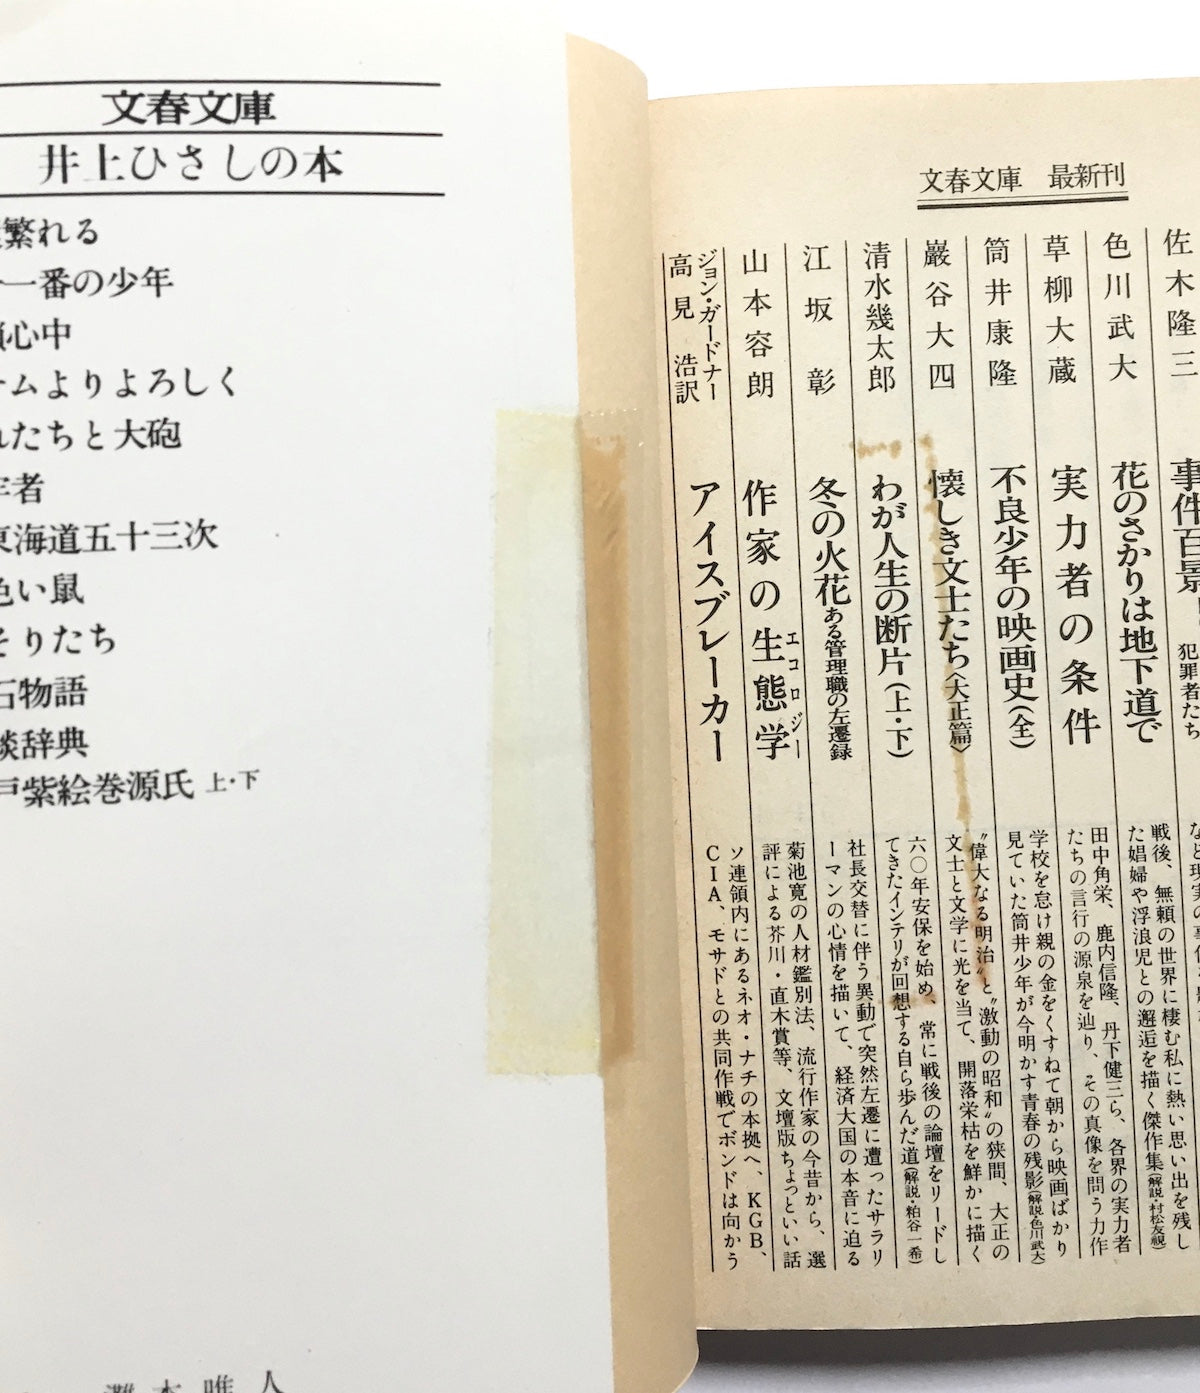 文春文庫
井上ひさしの本
繁れる
一番の少年
心中
ムよりよろしく
たちと大砲
者
東海道五十三次
色い鼠
そりたち
石物語
談辞典
戸紫絵巻源氏 上・下
灘本唯人
文春文庫 最新刊
佐木隆三
事件百景
犯罪者たち
色川武大
花のさかりは地下道で
戦後、無頼の世界に棲む私に熱い思い出を残し
た娼婦や浮浪児との邂逅を描く傑作集(解説・村松友視)
草柳大蔵
実力者の条件
田中角栄、鹿内信隆、丹下健三ら、各界の実力者
たちの言行の源泉を辿り、その真像を問う力作
筒井康隆
不良少年の映画史(全)
学校を怠け親の金をくすねて朝から映画ばかり
見ていた筒井少年が今明かす青春の残影(解説・色川武大)
巖谷大四
懐しき文士たち〈大正篇〉
"偉大なる明治"と"激動の昭和"の狭間、大正の
文士と文学に光を当て、開落栄枯を鮮かに描く
清水幾太郎
わが人生の断片(上・下)
六〇年安保を始め、常に戦後の論壇をリードし
てきたインテリが回想する自ら歩んだ道(解説・粕谷一希)
江坂彰
冬の火花 ある管理職の左遷録
社長交替に伴う異動で突然左遷に遭ったサラリ
ーマンの心情を描いて、経済大国の本音に迫る
山本容朗
作家の生態学
エコロジー
菊池寛の人材鑑別法、流行作家の今昔から、選
評による芥川・直木賞等、文壇版ちょっといい話
ジョン・ガードナー
高見 浩訳
アイスブレーカー
ソ連領内にあるネオ・ナチの本拠へ、KGB、
CIA、モサドとの共同作戦でボンドは向かう